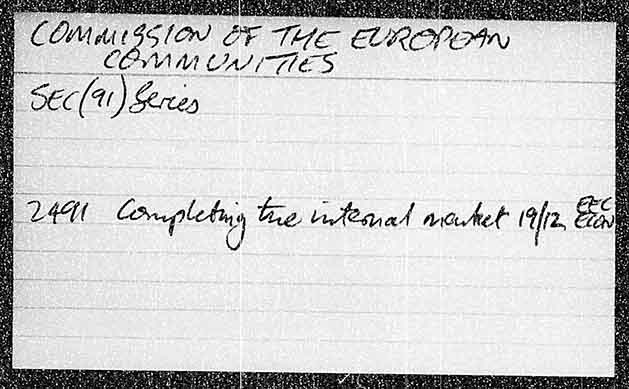 COMMISSION OF THE EUROPEAN
COMMUNITIES
SEC(91) Series
2491 Completing the internal market 19/12 EEC
ECON